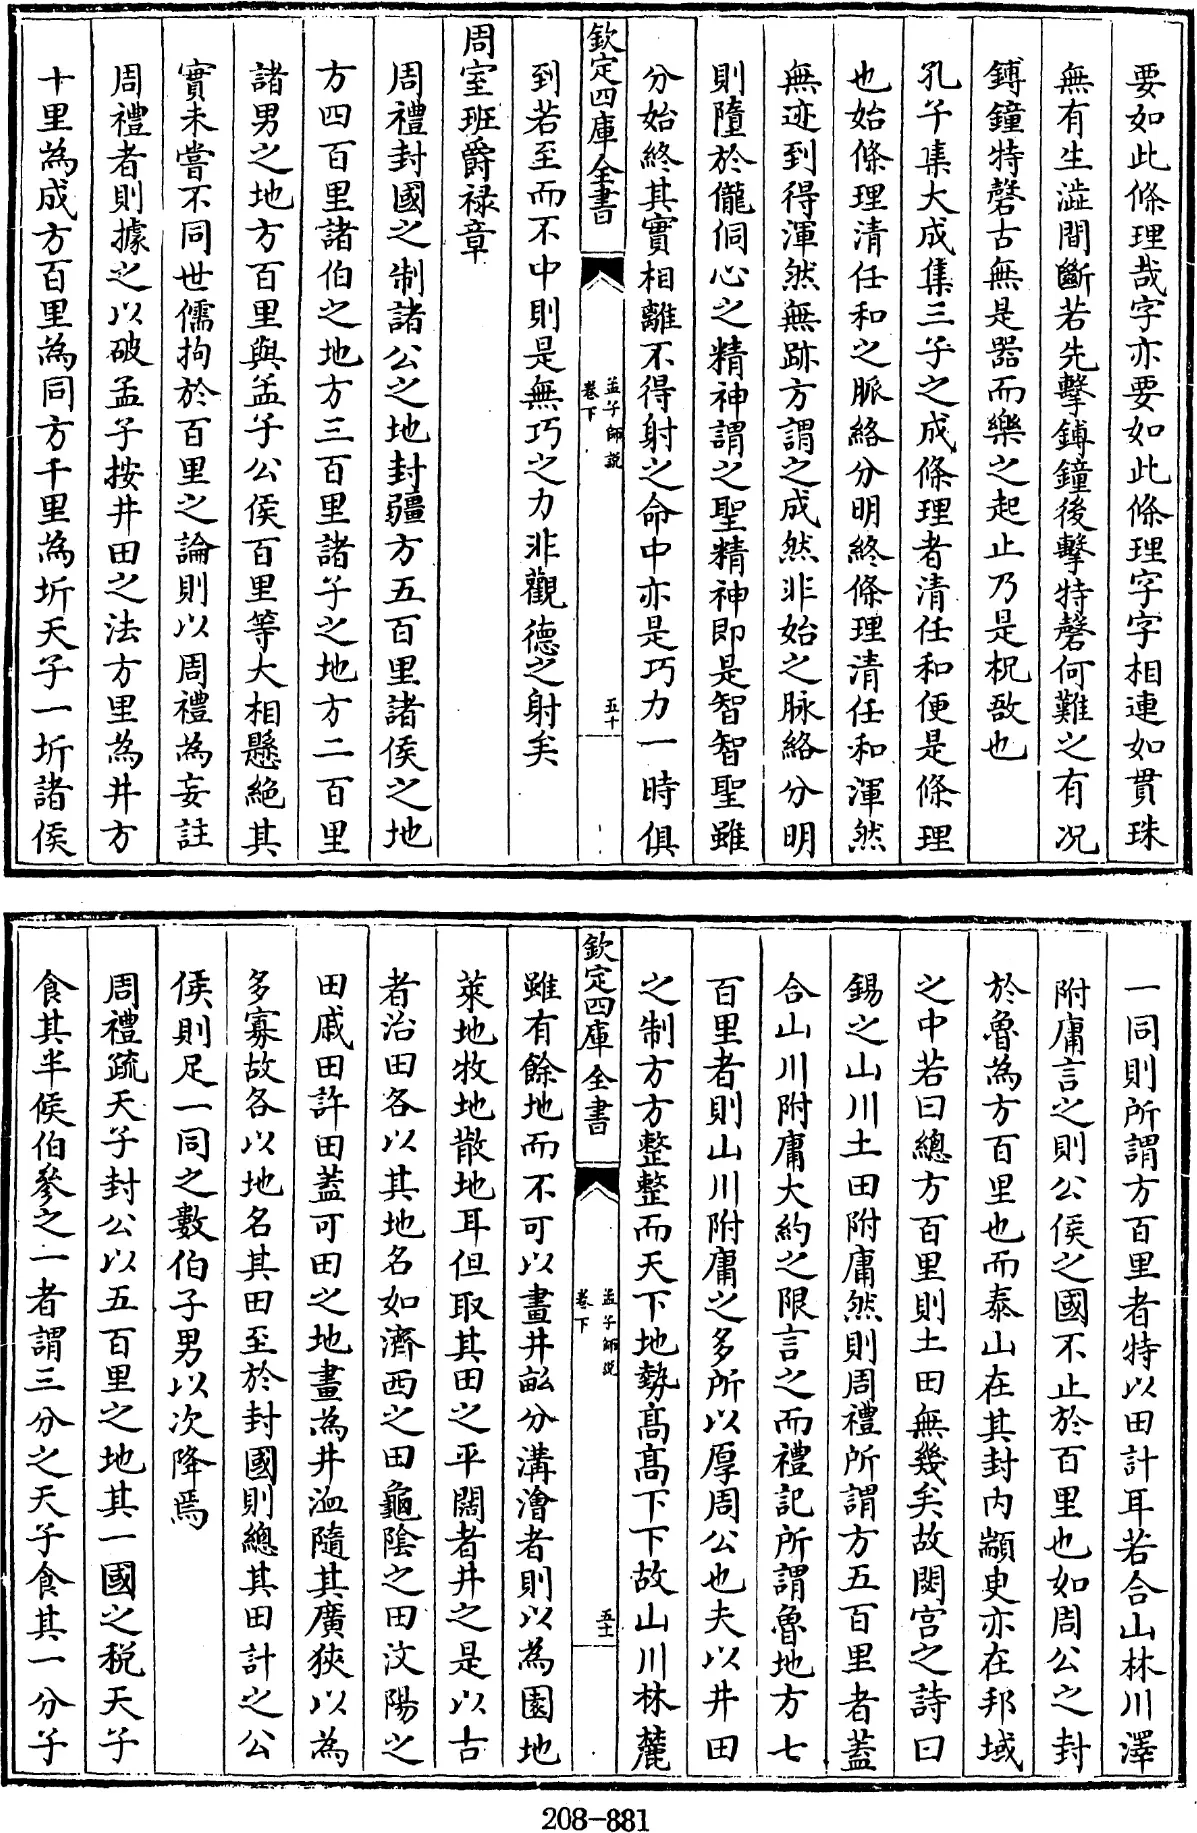 要如此條理哉字亦要如此條理字字相連如貫珠
無有生澁間斷若先擊鎛鐘後擊特磬何難之有况
鎛鐘特磬古無是器而樂之起止乃是柷敔也
孔子集大成集三子之成條理者清任和便是條理
也始條理清任和之脈絡分明終條理清任和渾然
無迹到得渾然無跡方謂之成然非始之脉絡分明
則墮於儱侗心之精神謂之聖精神即是智智聖雖
分始終其實相離不得射之命中亦是巧力一時俱
欽定四庫全書
孟子師說
卷下
五十
到若至而不中則是無巧之力非觀德之射矣
周室班爵禄章
周禮封國之制諸公之地封疆方五百里諸侯之地
方四百里諸伯之地方三百里諸子之地方二百里
諸男之地方百里與孟子公侯百里等大相懸絕其
實未嘗不同世儒拘於百里之論則以周禮為妄註
周禮者則據之以破孟子按井田之法方里為井方
十里為成方百里為同方千里為圻天子一圻諸侯
一同則所謂方百里者特以田計耳若合山林川澤
附庸言之則公侯之國不止於百里也如周公之封
於魯為方百里也而泰山在其封内顓臾亦在邦域
之中若曰總方百里則土田無幾矣故閟宫之詩曰
錫之山川土田附庸然則周禮所謂方五百里者蓋
合山川附庸大約之限言之而禮記所謂魯地方七
百里者則山川附庸之多所以厚周公也夫以井田
之制方方整整而天下地勢高高下下故山川林麓
欽定四庫全書
孟子師說
卷下
五十一
雖有餘地而不可以畫井畝分溝澮者則以為園地
萊地牧地散地耳但取其田之平闊者井之是以古
者治田各以其地名如濟西之田龜陰之田汶陽之
田戚田許田蓋可田之地畫為井洫隨其廣狹以為
多寡故各以地名其田至於封國則總其田計之公
侯則足一同之數伯子男以次降焉
周禮疏天子封公以五百里之地其一國之税天子
食其半侯伯參之一者謂三分之天子食其一分子
208-881